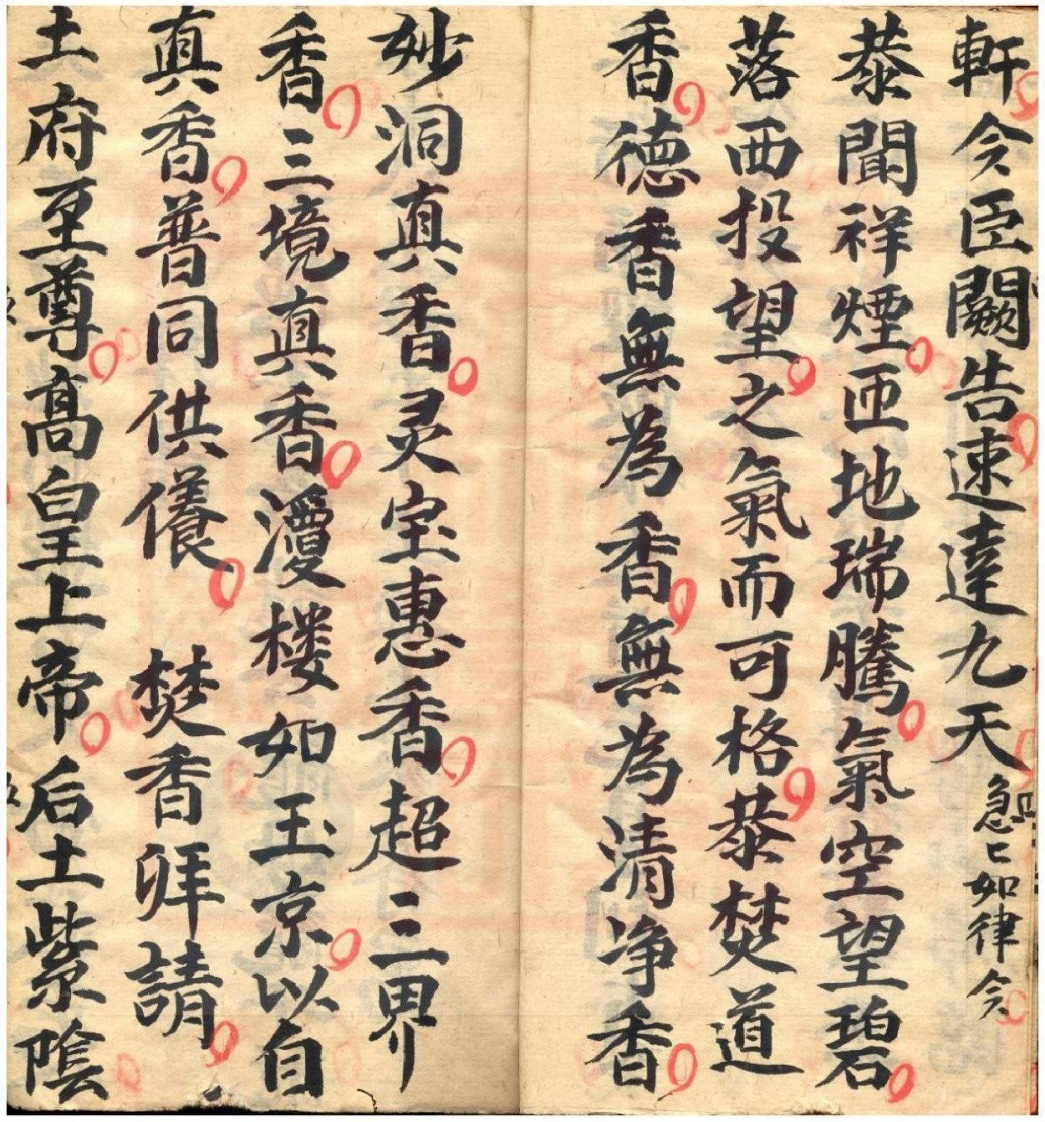 軒今臣闕告速達九天急〻如律令
恭聞祥煙匝地瑞騰氣空望碧
落西投望之氣而可格恭焚道
香德香無為香無為清净香
妙洞真香灵宝惠香超三界
香三境真香瓊楼如玉京以自
真香普同供養焚香拜請
土府至尊高皇上帝后土紫陰